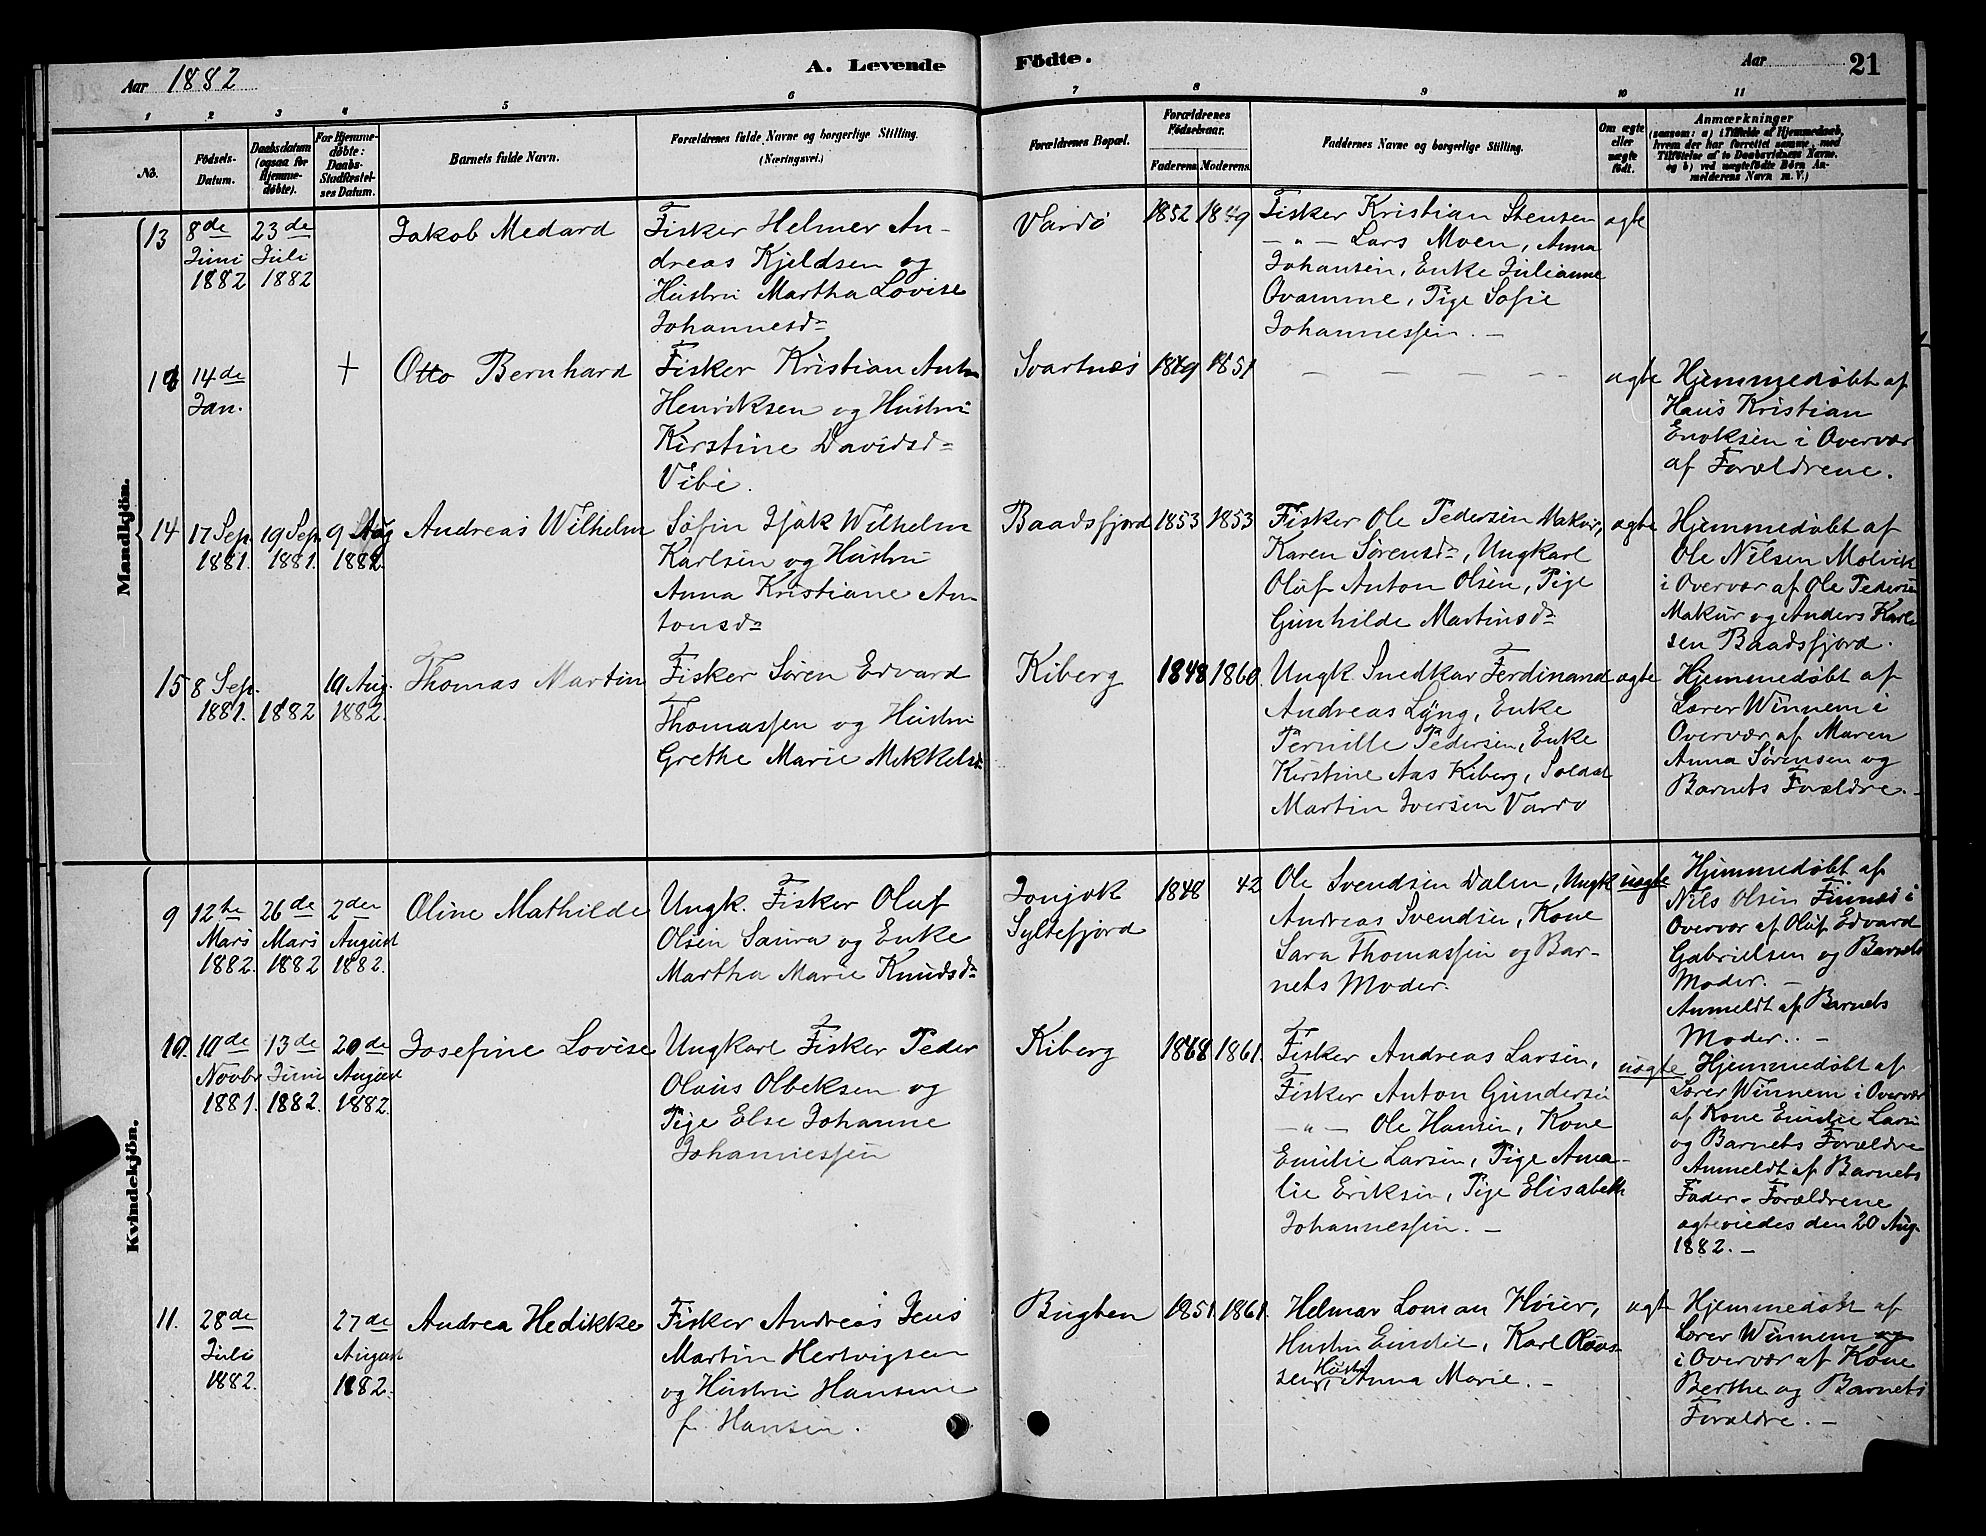 Aar 1882
A. Levende
Födte.
Aar
21
1
2
3
4
5
6
7
8
9
10
11
No.
Födsels-
Datum.
Daabsdatum
(ogsaa for
Hjemme-
døbte).
For Hjemme-
døbte:
Daabs-
Stadfæstel-
ses Datum.
Barnets fulde Navn.
Forældrenes fulde Navne og borgerlige Stilling.
(Næringsvei.)
Forældrenes Bopæl.
Forældrenes
Födselsaar.
Faderens.
Moderens.
Faddernes Navne og borgerlige Stilling.
Om ægte
eller
uægte
födt.
Anmærkninger
(saasom: a) i Tilfælde af Hjemmedaab,
hvem der har forrettet samme, med
Tilföielse af to Daabsvidners Navne,
og b) ved uægtefödte Börn An-
melderens Navn m. V.)
Mandkjön.
13
8de
Juni
1882
23de
Juli
1882
Jakob Medard
Fisker Helmer An-
dreas Kjeldsen og
Hustru Martha Lovise
Johannesdr
Vardö
1852
1849
Fisker Kristian Stensen
— " — Lars Moen, Anna
Johansen, Enke Julianne
Ovamme, Pige Sofie
Johannessen. —
ægte
14de
Jan.
+
Otto Bernhard
Fisker Kristian Anton
Henriksen og Hustru
Kirstine Davidsdr
Vibe.
Svartnæs
1849
1851
— — — — —
ægte
Hjemmedøbt af
Hans Kristian
Enoksen i Overvær
af Forældrene.
14
17 Sep
1881.
19 Sep
1881.
9 Aug
1882.
Andreas Wilhelm
Søfin Isak Wilhelm
Karlsen og Hustru
Anna Kristiane An-
tonsdr
Baadsfjord
1853
1853
Fisker Ole Pedersen Makur,
Karen Sørensdr, Ungkarl
Oluf Anton Olsen, Pige
Gunhilde Martinsdr
ægte
Hjemmedøbt af
Ole Nilsen Molvik
i Overvær af Ole Pedersen
Makur og Anders Karl-
sen Baadsfjord.
15
8 Sep.
1881.
1882
10 Aug.
1882.
Thomas Martin
Fisker Søren Edvard
Thomassen og Hustru
Grethe Marie Mikkelsdr
Kiberg
1848
1860.
Ungk. Snedker Ferdinand
Andreas Lyng, Enke
Pernille Pedersen, Enke
Kirstine Aas Kiberg, Soldat
Martin Iversen Vardø
ægte
Hjemmedøbt af
Lærer Winnem i
Overvær af Maren
Anna Sørensen og
Barnets Forældre. —
Kvindekjön.
9
12te
Mars
1882.
26de
Mars
1882
2den
August
1882.
Oline Mathilde
Ungk. Fisker Oluf
Olsen Saura og Enke
Martha Marie Knudsdr
Syltefjord
1848
42
Ole Svendsen Dalen, Ungk
Andreas Svendsen, Kone
Sara Thomassen og Bar-
nets Moder.
uægte
Hjemmedøbt af
Nils Olsen Finnes i
Overvær af Oluf Edvard
Gabrielsen og Barnets
Moder. —
Anmeldt af Barnets
Moder. —
10.
10de
Novbr
1881.
13de
Juni
1882.
20de
August
1882.
Josefine Lovise
Ungkarl Fisker Peder
Olaus Olbeksen og
Pige Else Johanne
Johannessen
Kiberg
1868
1861.
Fisker Andreas Larsen,
Fisker Anton Gundersen
— " — Ole Hansen, Kone
Emilie Larsen, Pige Ama-
lie Eriksen, Pige Elisabeth
Johannessen. —
uægte
Hjemmedøbt af
Lærer Winnem i Overvær
af Kone Emilie Larsen
og Barnets Forældre
Anmeldt af Barnets
Fader. Forældrene
ægteviedes den 20 Aug.
1882. —
11.
28de
Juli
1882.
27de
August
1882.
Andrea Hedikke
Fisker Andreas Jens
Martin Hertvigsen
og Hustru Hansine
f. Hansen.
Bugten
1851.
1861.
Helmar Loman Høier,
Hustru Emilie, Karl Olaus-
sen, Hustr Anna Marie. —
ægt
Hjemmedøbt af
Lærer Winnem og
i Overvær af Kone
Berthe og Barnets
Forældre. —